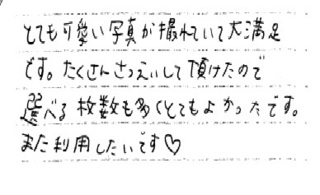 とても可愛い写真が撮れていて大満足
です。たくさんさつえいして頂けたので
選べる枚数も多くとてもよかったです。
また利用したいです♡